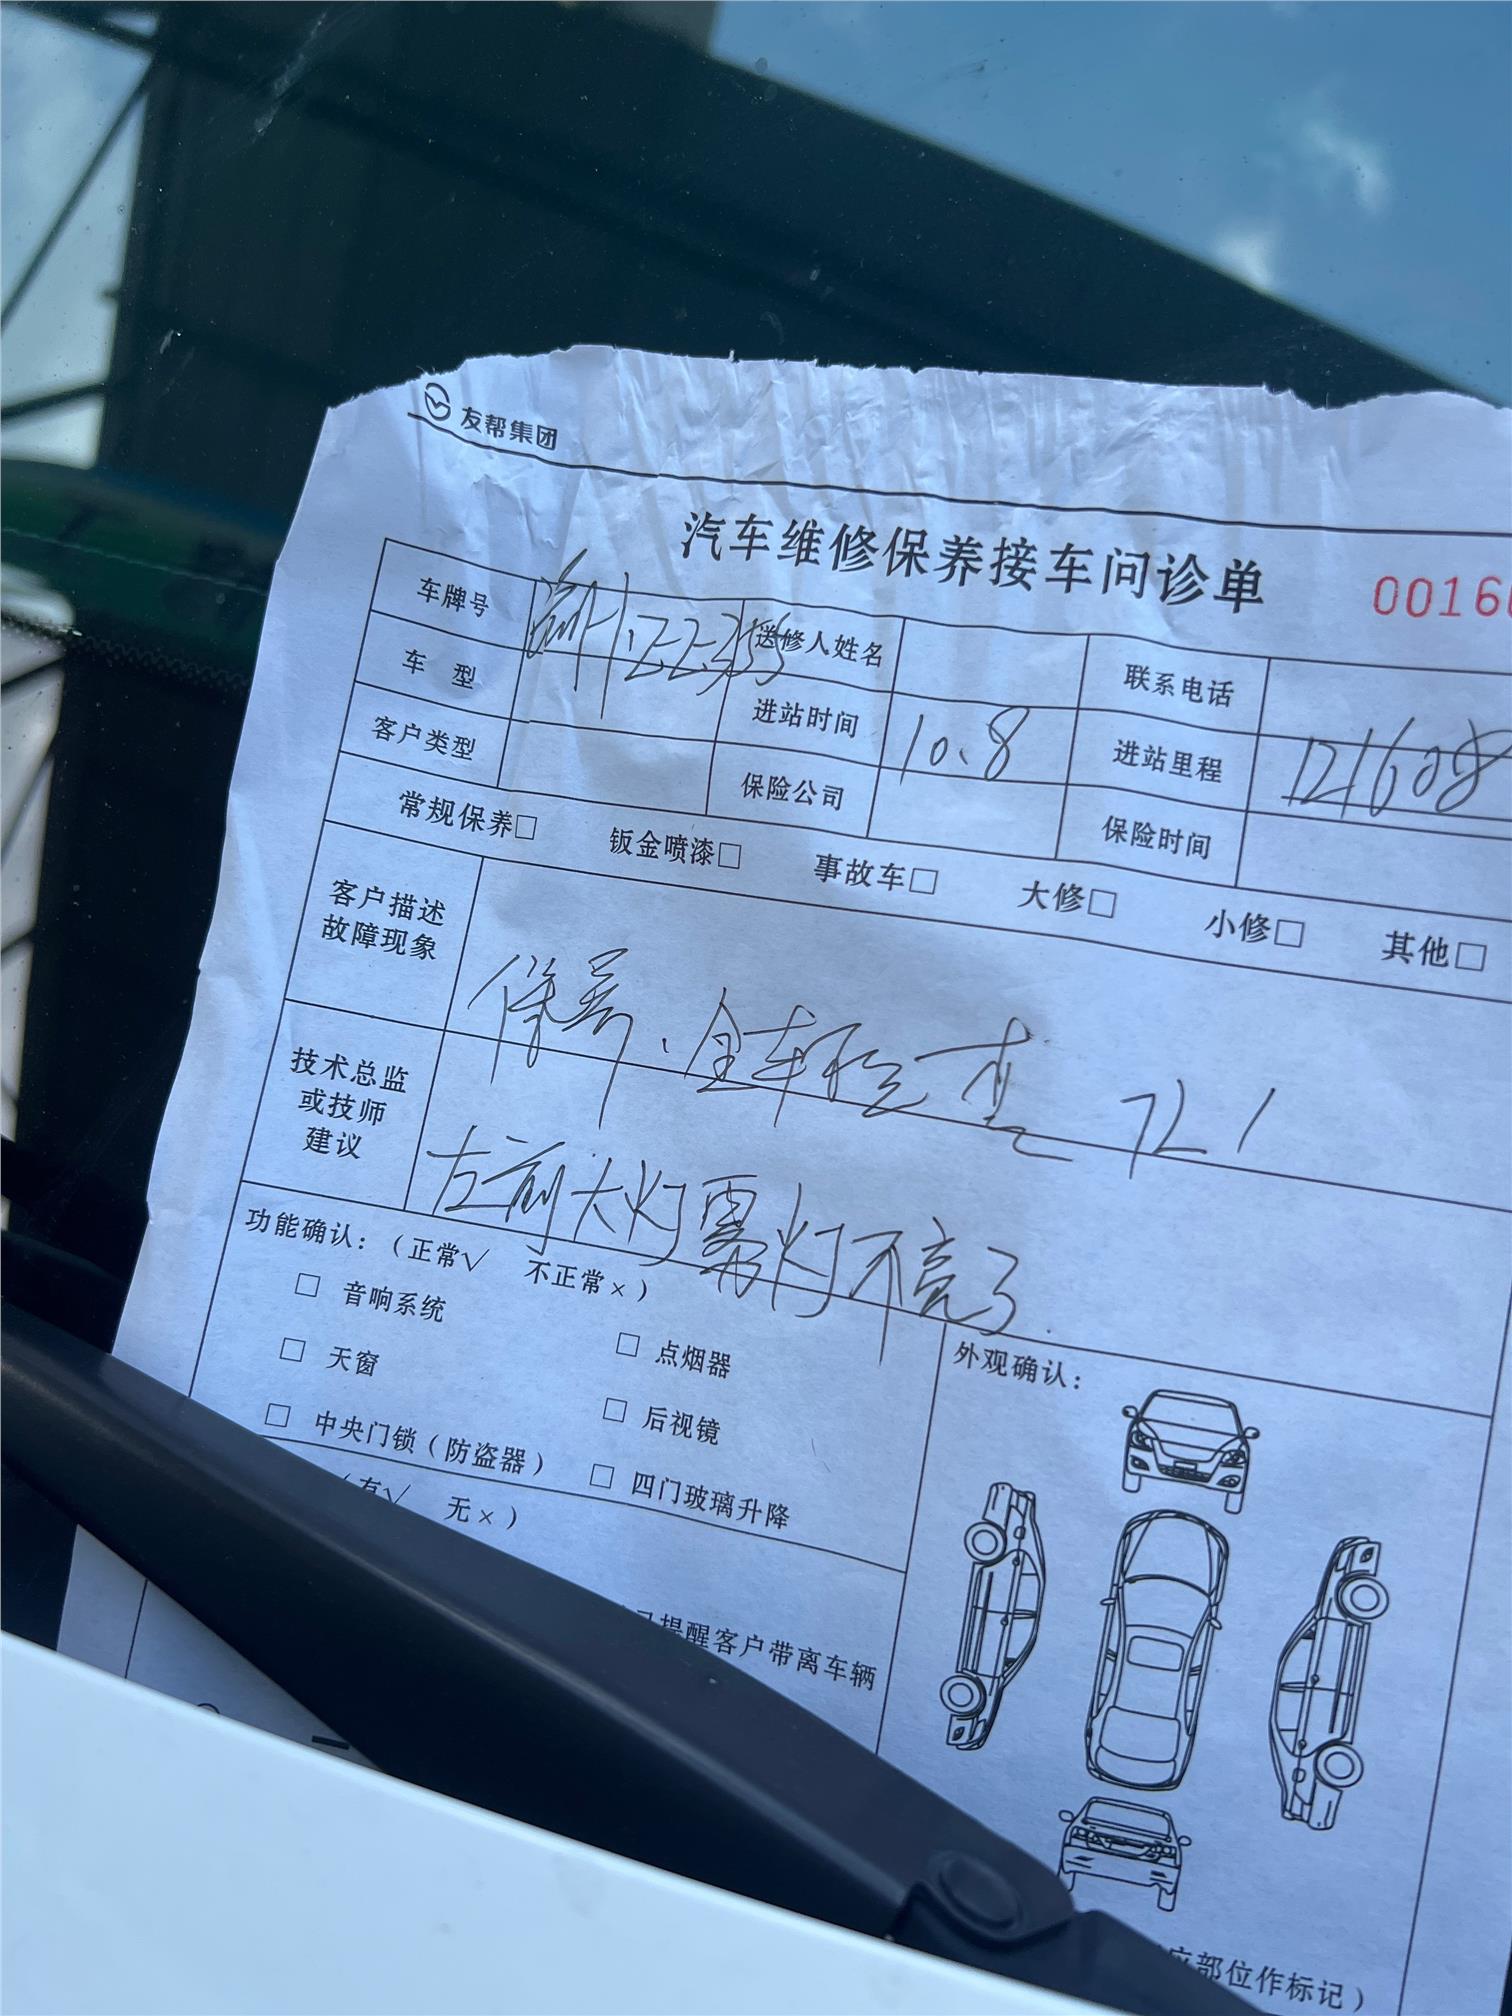 友帮集团
汽车维修保养接车问诊单
00160
车牌号 送修人姓名 联系电话
车 型 进站时间 10.8 进站里程 121608
客户类型 保险公司 保险时间
常规保养□ 钣金喷漆□ 事故车□ 大修□ 小修□ 其他□
客户描述
故障现象
保养、全车检查
技术总监
或技师
建议
左前大灯雾灯不亮了
功能确认：（正常√ 不正常×）
□ 音响系统 □ 点烟器
□ 天窗 □ 后视镜
□ 中央门锁（防盗器） □ 四门玻璃升降
（有√ 无×）
提醒客户带离车辆
外观确认：
部位作标记）